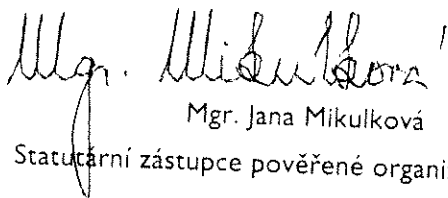 Mgr. Mikulková
Mgr. Jana Mikulková
Statutární zástupce pověřené organi